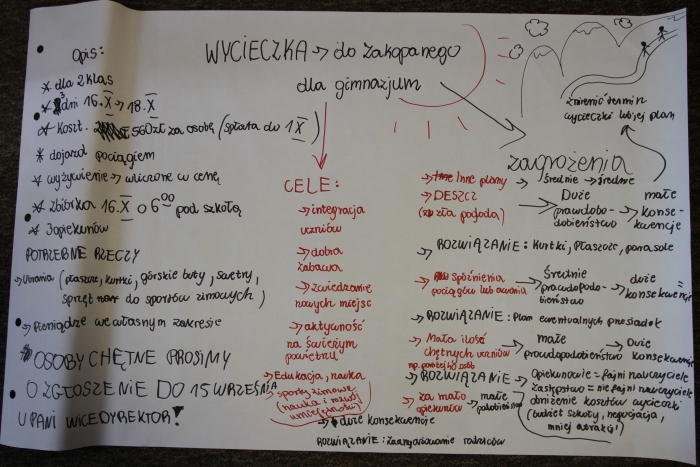 WYCIECZKA → do Zakopanego
dla gimnazjum
Opis:
* dla 2 klas
* 3 dni 16.X → 18.X
* Koszt. 560zł za osobę (spłata do 1X)
* dojazd pociągiem
* wyżywienie → wliczone w cenę
* Zbiórka 16.X o 6⁰⁰ pod szkołą
* 3 opiekunów
POTRZEBNE RZECZY
→ Ubrania (płaszcze, kurtki, górskie buty, swetry,
sprzęt do sportów zimowych)
→ Pieniądze we własnym zakresie
* OSOBY CHĘTNE PROSIMY
O ZGŁOSZENIE DO 15 WRZEŚNIA
U PANI WICEDYREKTOR!
CELE:
→ integracja
uczniów
→ dobra
zabawa
→ zwiedzanie
nowych miejsc
→ aktywność
na świeżym
powietrzu
→ Edukacja, nauka
→ sporty zimowe
(nauka i rozwój
umiejętności)
zmienić termin
wycieczki lub jej plan
zagrożenia
→ Inne plany → średnie → średnie
→ DESZCZ
(zła pogoda) → Duże
prawdopodo-
bieństwo → małe
konse-
kwencje
→ ROZWIĄZANIE: Kurtki, Płaszcze, parasole
→ Spóźnienia
pociągów lub → Średnie
prawdopodo-
bieństwo → duże =
konsekwencje
→ ROZWIĄZANIE: Plan ewentualnych przesiadek
→ Mała ilość
chętnych uczniów
np. poniżej osób → małe
prawdopodobieństwo → Duże
konsekwencje
→ ROZWIĄZANIE → Opiekunowie = fajni nauczyciele
Zastępstwo = nie fajni nauczyciele
obniżenie kosztów wycieczki
(budżet szkoły, negocjacja,
mniej atrakcji)
→ za mało
opiekunów → małe
→ duże konsekwencje
ROZWIĄZANIE: Zaangażowanie rodziców